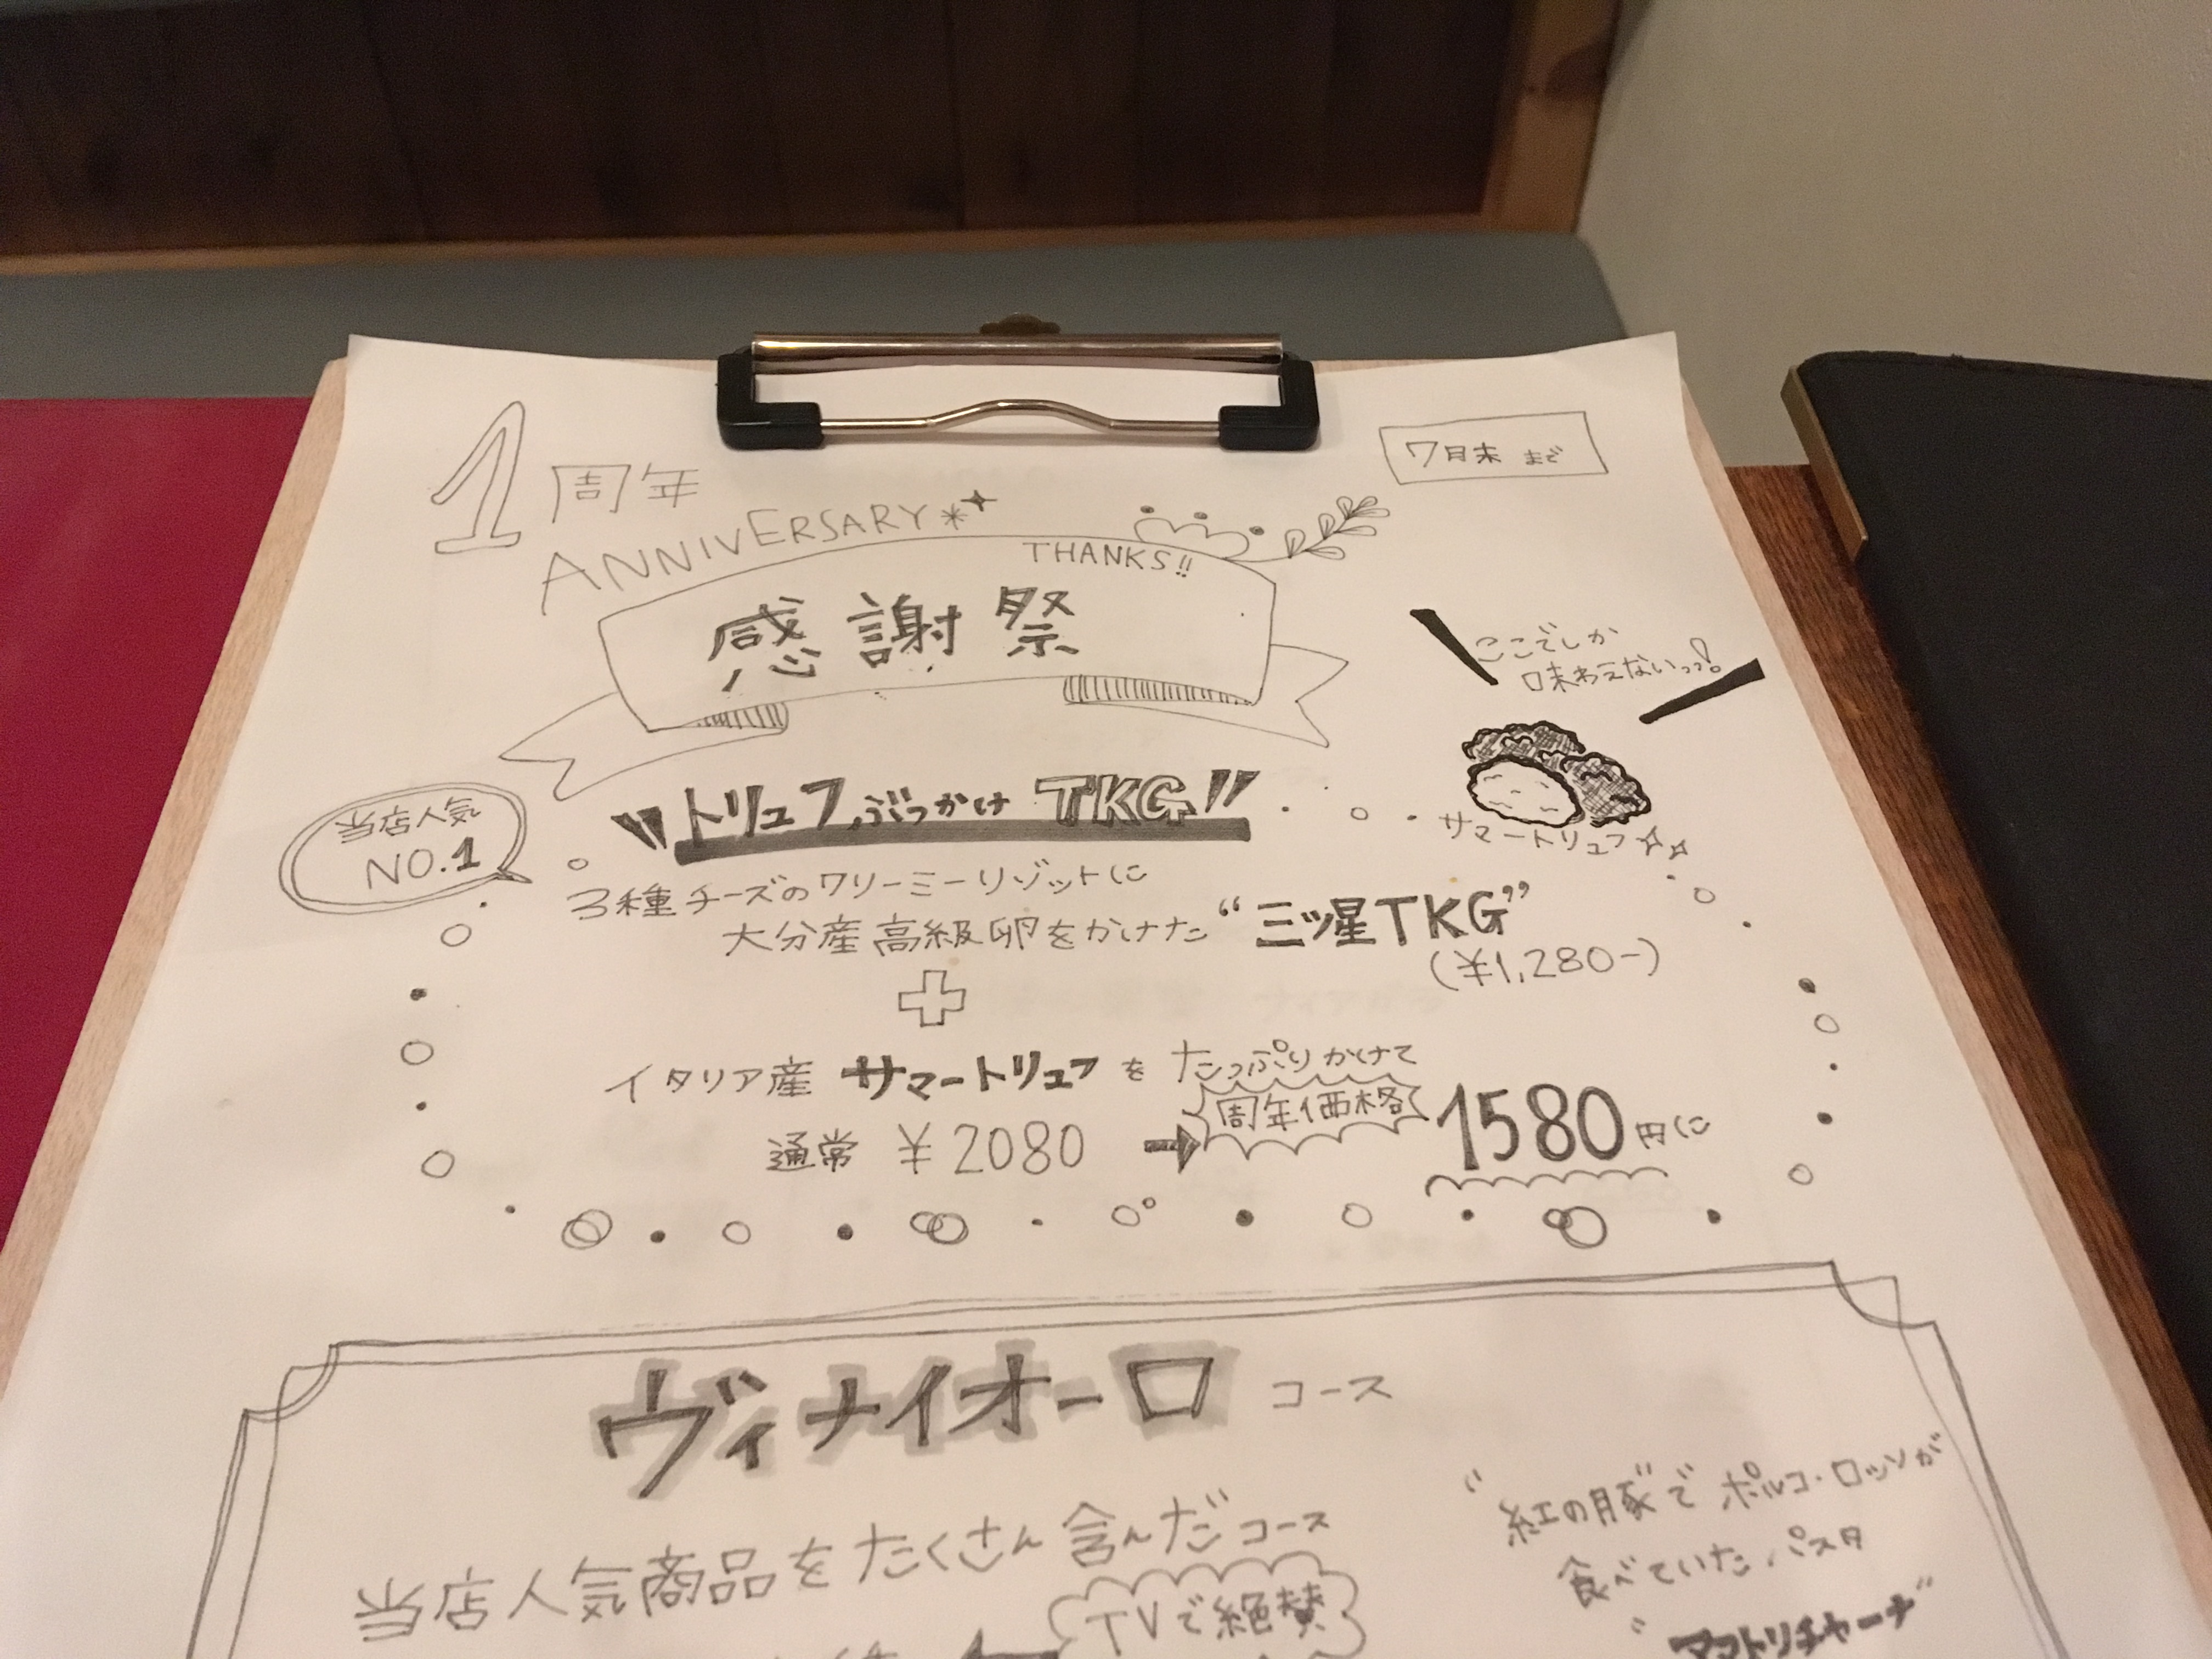 1周年
ANNIVERSARY
7月末 まで
THANKS!!
感謝祭
ここでしか
味わえないっっ!
"トリュフぶっかけ TKG"
サマートリュフ
当店人気
NO.1
3種チーズのクリーミーリゾットに
大分産高級卵をかけた"三ツ星TKG"
(¥1,280-)
イタリア産 サマートリュフを たっぷりかけて
通常 ¥2080 → 周年価格 1580円に
ヴィナイオーロ コース
当店人気商品をたくさん含んだコース
TVで絶賛
"紅の豚"で ポルコ・ロッソが
食べていたパスタ
"アマトリチャーナ"